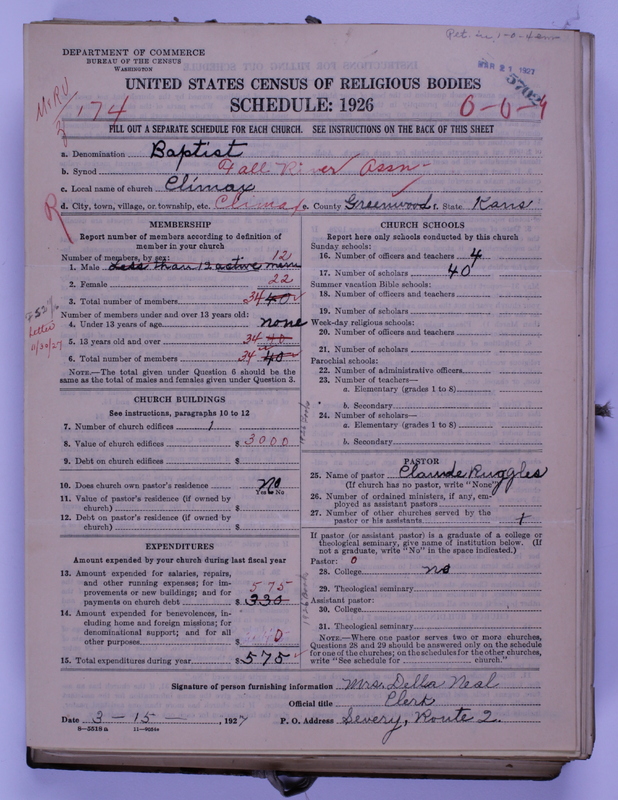 MAR 21 1927
DEPARTMENT OF COMMERCE
BUREAU OF THE CENSUS
WASHINGTON
UNITED STATES CENSUS OF RELIGIOUS BODIES
SCHEDULE: 1926
174
0-0-9
FILL OUT A SEPARATE SCHEDULE FOR EACH CHURCH. SEE INSTRUCTIONS ON THE BACK OF THIS SHEET
a. Denomination Baptist
b. Synod Fall River Assn
c. Local name of church Climax
d. City, town, village, or township, etc. Climax e. County Greenwood f. State Kans
R
MEMBERSHIP
Report number of members according to definition of
member in your church
Number of members, by sex: 12
1. Male Less than 12 active mem
2. Female 22
3. Total number of members 34 40
Number of members under and over 13 years old:
4. Under 13 years of age none
5. 13 years old and over 34 40
6. Total number of members 34 40
Letter
11/30/27
NOTE.—The total given under Question 6 should be the
same as the total of males and females given under Question 3.
CHURCH BUILDINGS
See instructions, paragraphs 10 to 12
7. Number of church edifices 1
8. Value of church edifices $ 3000
9. Debt on church edifices $
10. Does church own pastor's residence No
Yes or No
11. Value of pastor's residence (if owned by
church) $
12. Debt on pastor's residence (if owned by
church) $
EXPENDITURES
Amount expended by your church during last fiscal year
13. Amount expended for salaries, repairs,
and other running expenses; for im-
provements or new buildings; and for 575
payments on church debt $ 330
14. Amount expended for benevolences, in-
cluding home and foreign missions; for
denominational support; and for all
other purposes
15. Total expenditures during year $ 575
CHURCH SCHOOLS
Report here only schools conducted by this church
Sunday schools:
16. Number of officers and teachers 4
17. Number of scholars 40
Summer vacation Bible schools:
18. Number of officers and teachers
19. Number of scholars
Week-day religious schools:
20. Number of officers and teachers
21. Number of scholars
Parochial schools:
22. Number of administrative officers
23. Number of teachers—
a. Elementary (grades 1 to 8)
b. Secondary
24. Number of scholars—
a. Elementary (grades 1 to 8)
b. Secondary
PASTOR
25. Name of pastor Claude Ruggles
(If church has no pastor, write "None")
26. Number of ordained ministers, if any, em-
ployed as assistant pastors
27. Number of other churches served by the
pastor or his assistants 1
If pastor (or assistant pastor) is a graduate of a college or
theological seminary, give name of institution below. (If
not a graduate, write "No" in the space indicated.)
Pastor: 0
28. College no
29. Theological seminary
Assistant pastor:
30. College
31. Theological seminary
NOTE.—Where one pastor serves two or more churches,
Questions 28 and 29 should be answered only on the schedule
for one of the churches; on the schedules for the other churches,
write "See schedule for church."
Signature of person furnishing information Mrs. Della Neal
Official title Clerk
Date 3-15-, 1927 P. O. Address Severy, Route 2.
8-5518 a